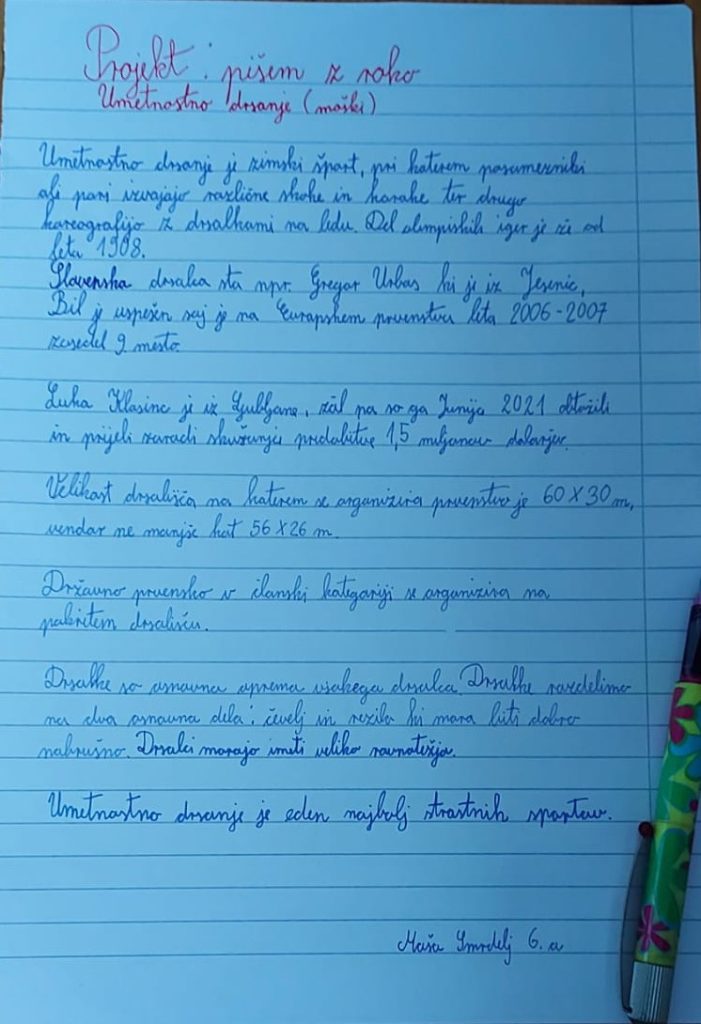 Projekt : pišem z roko
Umetnostno drsanje (moški)
Umetnostno drsanje je zimski šport, pri katerem posamezniki
ali pari izvajajo različne skoke in korake ter drugo
koreografijo z drsalkami na ledu. Del olimpiskih iger je že od
leta 1908.
Slovenska drsalca sta npr. Gregor Urbas ki je iz Jesenic,
Bil je uspešen saj je na Europskem prvenstvu leta 2006-2007
zasedel 9 mesto.
Luka Klasinc je iz Ljubljane, žal pa so ga Junija 2021 obtožili
in prijeli zaradi skušanja pridobitve 1,5 miljonov dolarjev.
Velikost drsališča na katerem se organizira prvenstvo je 60 X 30 m,
vendar ne manjše kot 56 X 26 m.
Državno prvensko v članski kategoriji se organizira na
pokritem drsališču.
Drsalke so osnovna oprema vsakega drsalca. Drsalke razdelimo
na dva osnovna dela : čevelj in rezilo ki mora biti dobro
nabrušno. Drsalci morajo imeti veliko ravnotežja.
Umetnostno drsanje je eden najbolj strastnih sportov.
Maša Smrdelj 6. a